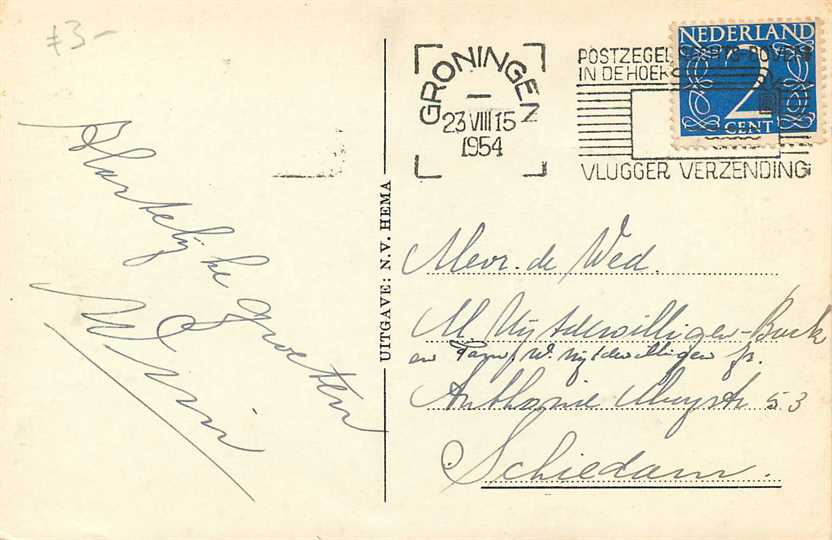 ƒ3-
Hartelijke groeten
Wim
UITGAVE: N.V. HEMA
GRONINGEN
23 VIII 15
1954
POSTZEGEL RECHTS BOVEN
IN DE HOEK
VLUGGER VERZENDING
NEDERLAND
2
CENT
Mevr. de Wed.
M. Uytderwilligen-Buck
en Fam. W. Uytdewilligen jr.
Anthonie Muysstr 53
Schiedam.